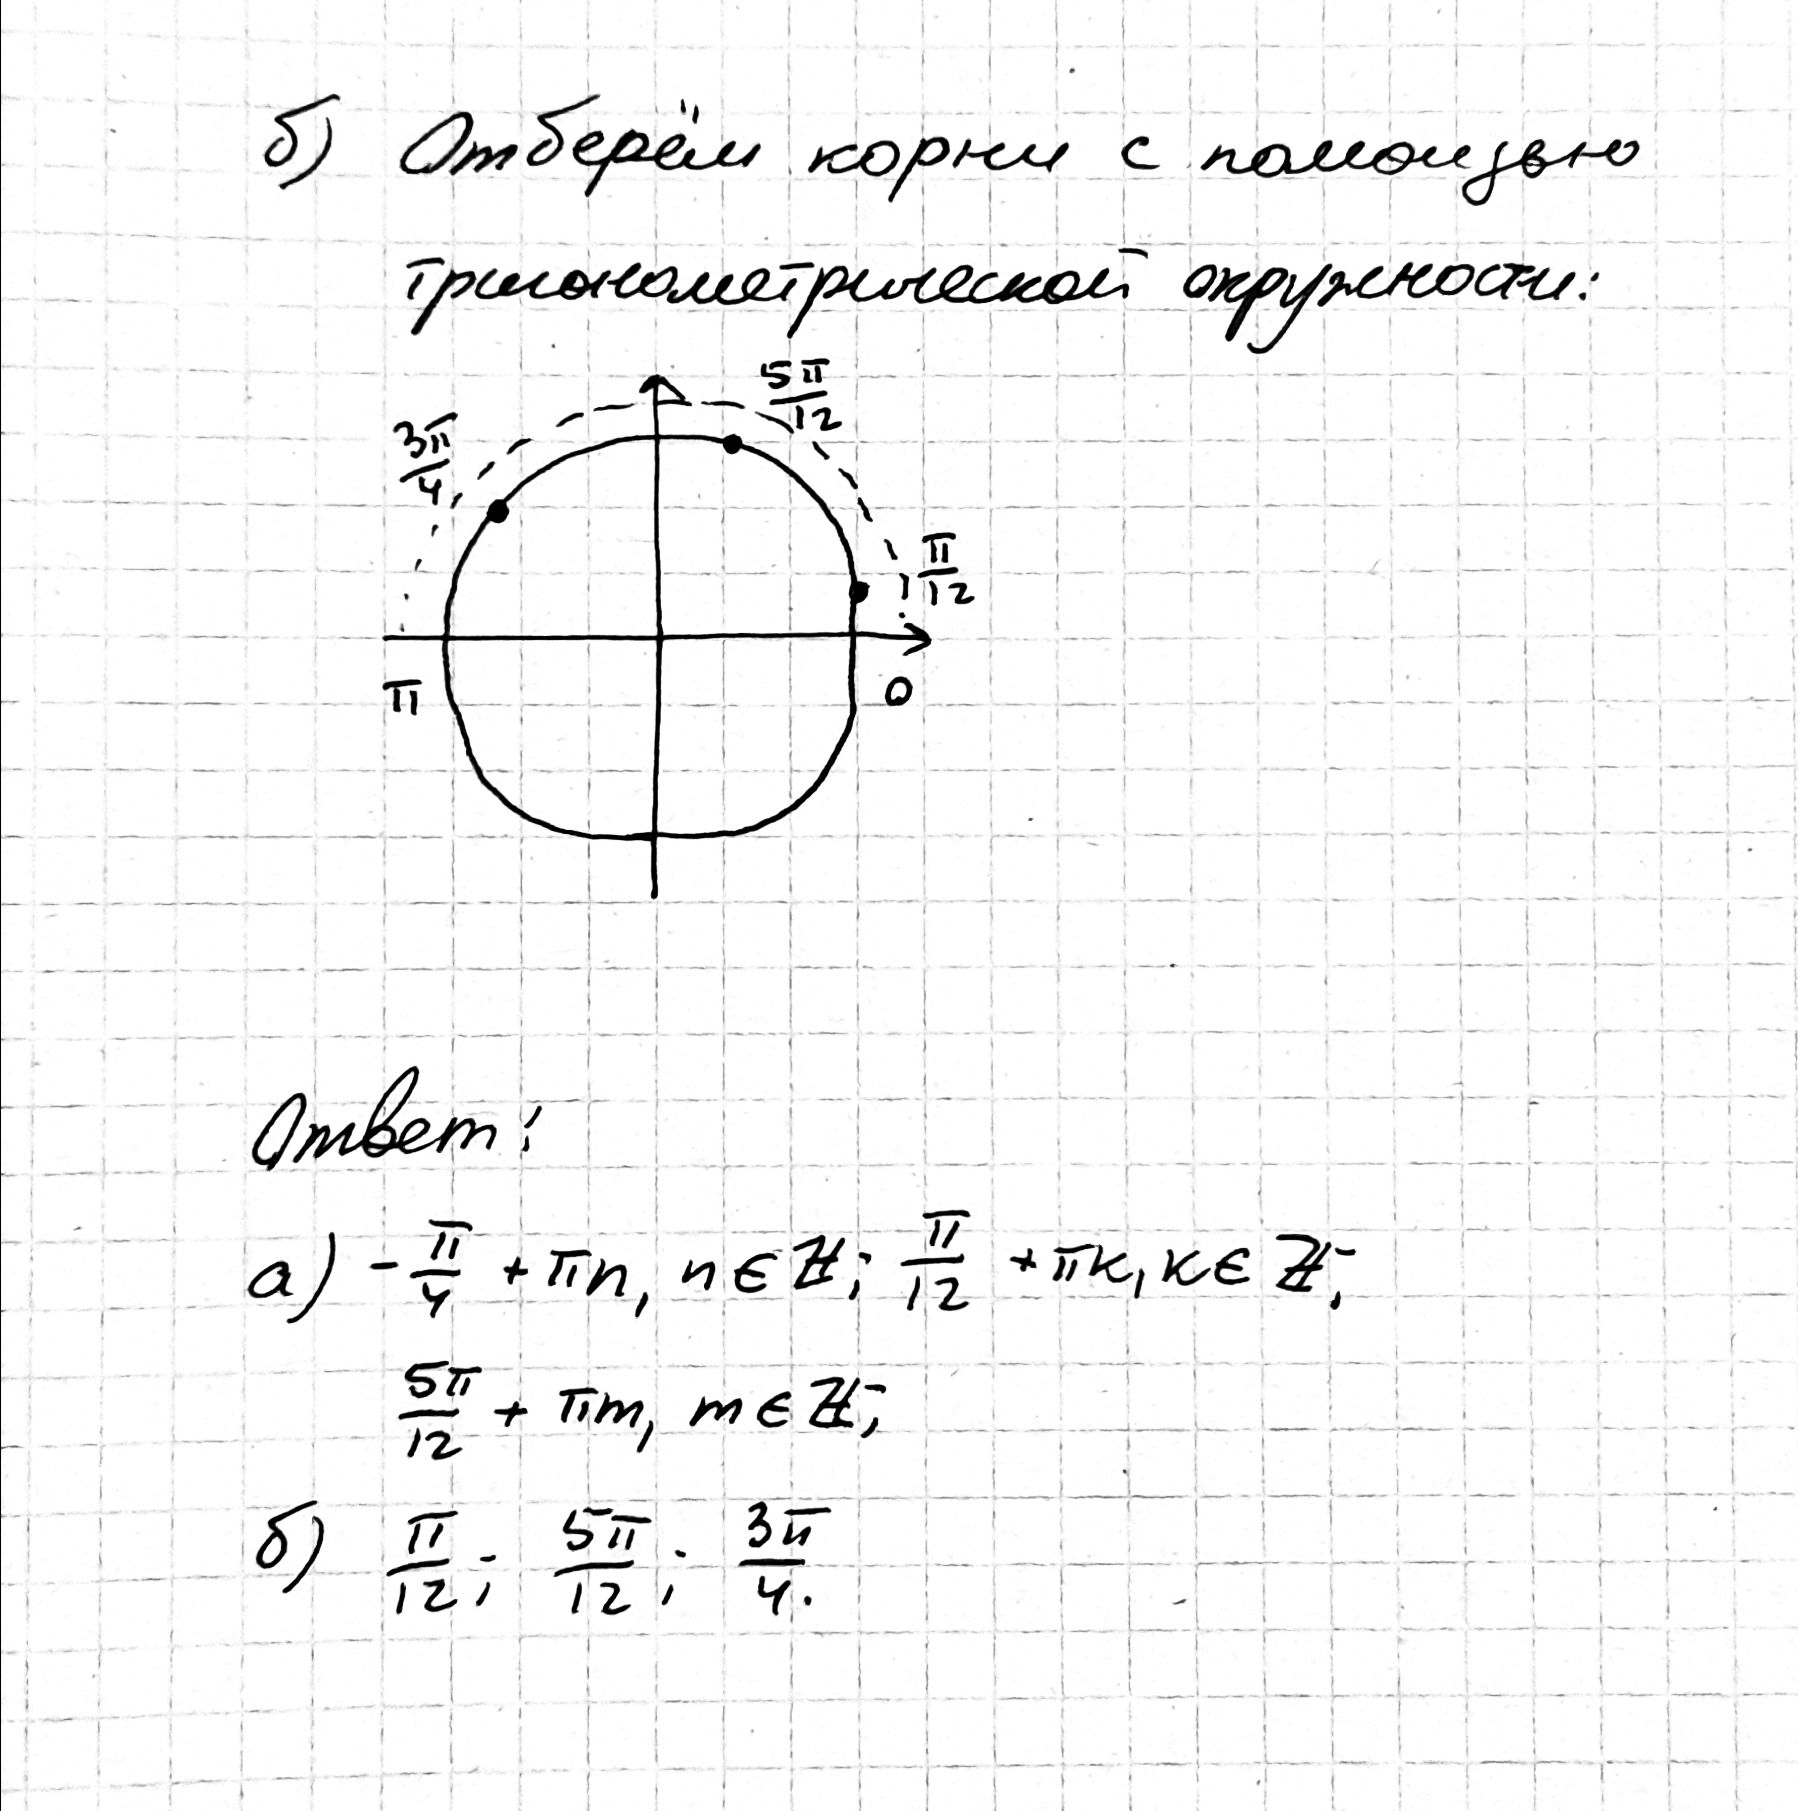 б) Отберём корни с помощью
тригонометрической окружности:
5π/12
3π/4
π/12
π
0
Ответ:
а) -π/4 + πn, n∈ℤ; π/12 + πk, k∈ℤ;
5π/12 + πm, m∈ℤ;
б) π/12; 5π/12; 3π/4.